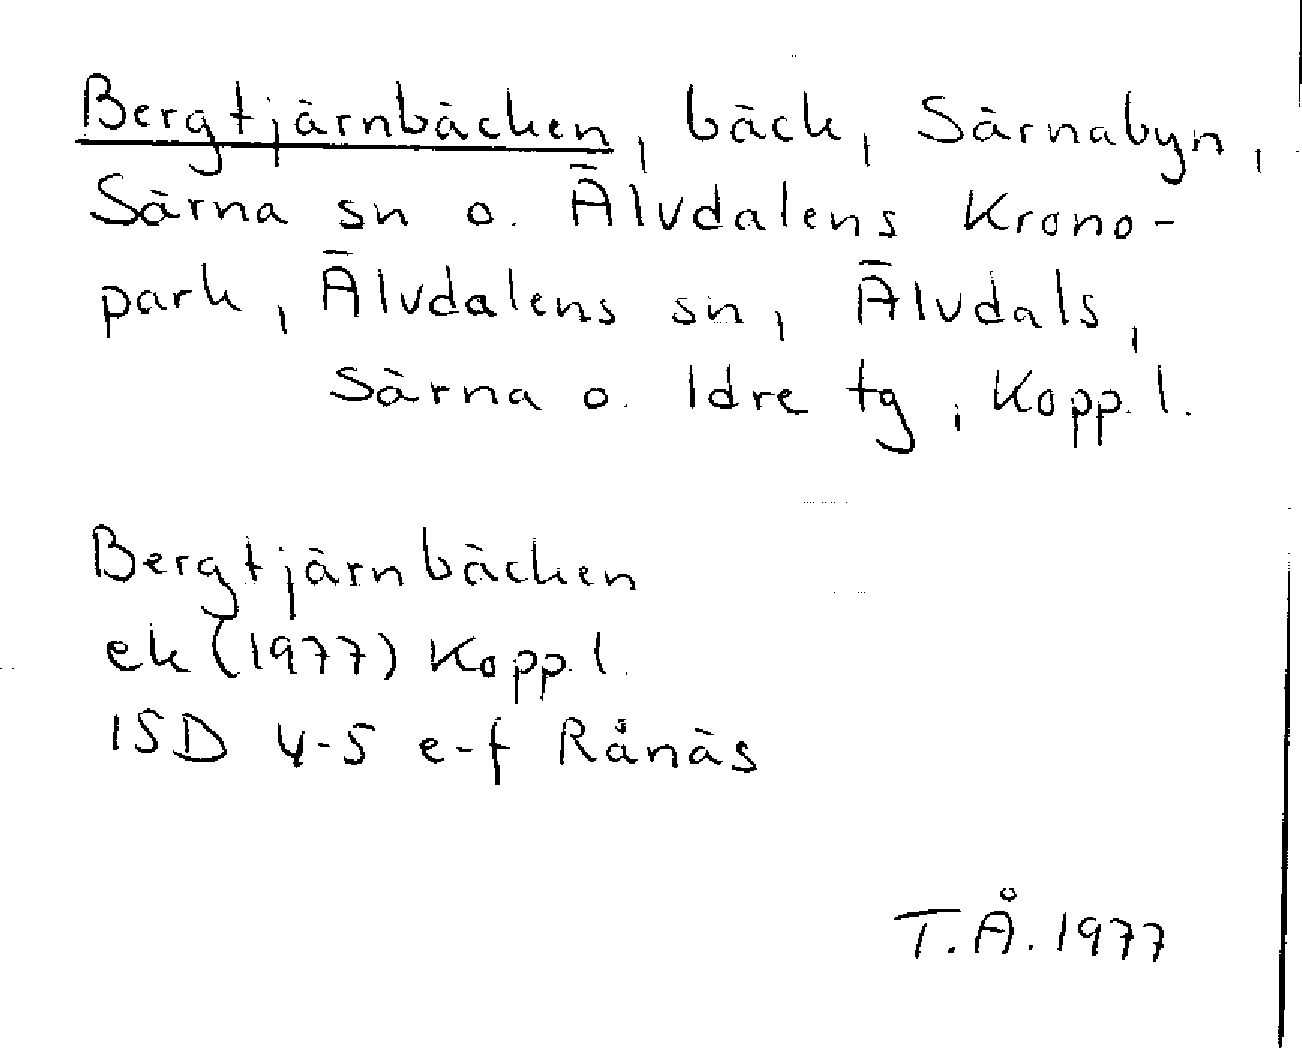 Bergtjärnbäcken, bäck, Särnabyn,
Särna sn o. Älvdalens Krono-
park, Älvdalens sn, Älvdals,
Särna o. Idre tg, Kopp. l.
Bergtjärnbäcken
ek (1977) Kopp. l.
15D 4-5 e-f Rånäs
T.Å. 1977